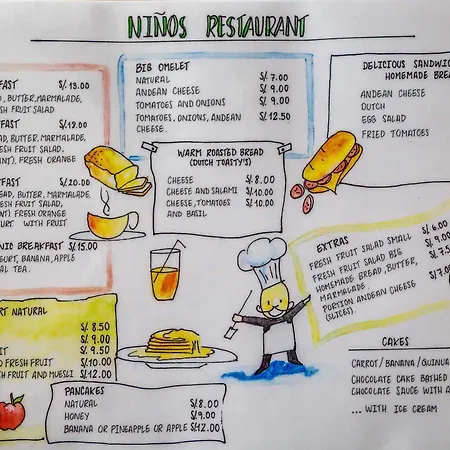 NIÑOS RESTAURANT
FAST S/. 13.00
BUTTER, MARMALADE,
FRESH FRUIT SALAD
FAST S/.18.00
BUTTER, MARMALADE,
FRESH FRUIT SALAD.
FRESH ORANGE
FAST S/.20.00
BUTTER, MARMALADE,
FRESH FRUIT SALAD,
FRESH ORANGE
WITH FRUIT
BREAKFAST S/.15.00
BANANA, APPLE
TEA.
BIG OMELET
NATURAL S/. 7.00
ANDEAN CHEESE S/. 9.00
TOMATOES AND ONIONS S/. 9.00
TOMATOES, ONIONS, ANDEAN S/. 12.50
CHEESE
WARM ROASTED BREAD
(DUTCH TOASTY'S)
CHEESE S/. 8.00
CHEESE AND SALAMI S/. 10.00
CHEESE, TOMATOES S/. 10.00
AND BASIL
DELICIOUS
HOMEMADE
ANDEAN CHEESE
DUTCH
EGG SALAD
FRIED TOMATOES
EXTRAS
FRESH FRUIT SALAD SMALL S/. 6.00
FRESH FRUIT SALAD BIG S/. 9.00
HOMEMADE BREAD, BUTTER, S/. 7.5
MARMALADE.
PORTION ANDEAN CHEESE S/. 7.0
(SLICES).
NATURAL
S/. 8.50
S/. 9.00
S/. 9.50
FRESH FRUIT S/.10.00
FRESH FRUIT AND MUESLI S/.12.00
PANCAKES
NATURAL S/. 8.00
HONEY S/. 9.00
BANANA OR PINEAPPLE OR APPLE S/. 12.00
CAKES
CARROT / BANANA / QUINUA
CHOCOLATE CAKE BATHED
CHOCOLATE SAUCE WITH
... WITH ICE CREAM